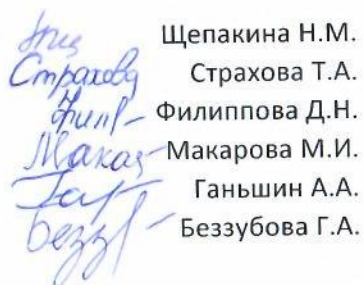 Щепакина Н.М.
Страхова Страхова Т.А.
Филиппова Д.Н.
Макарова М.И.
Ганьшин А.А.
Безз Беззубова Г.А.